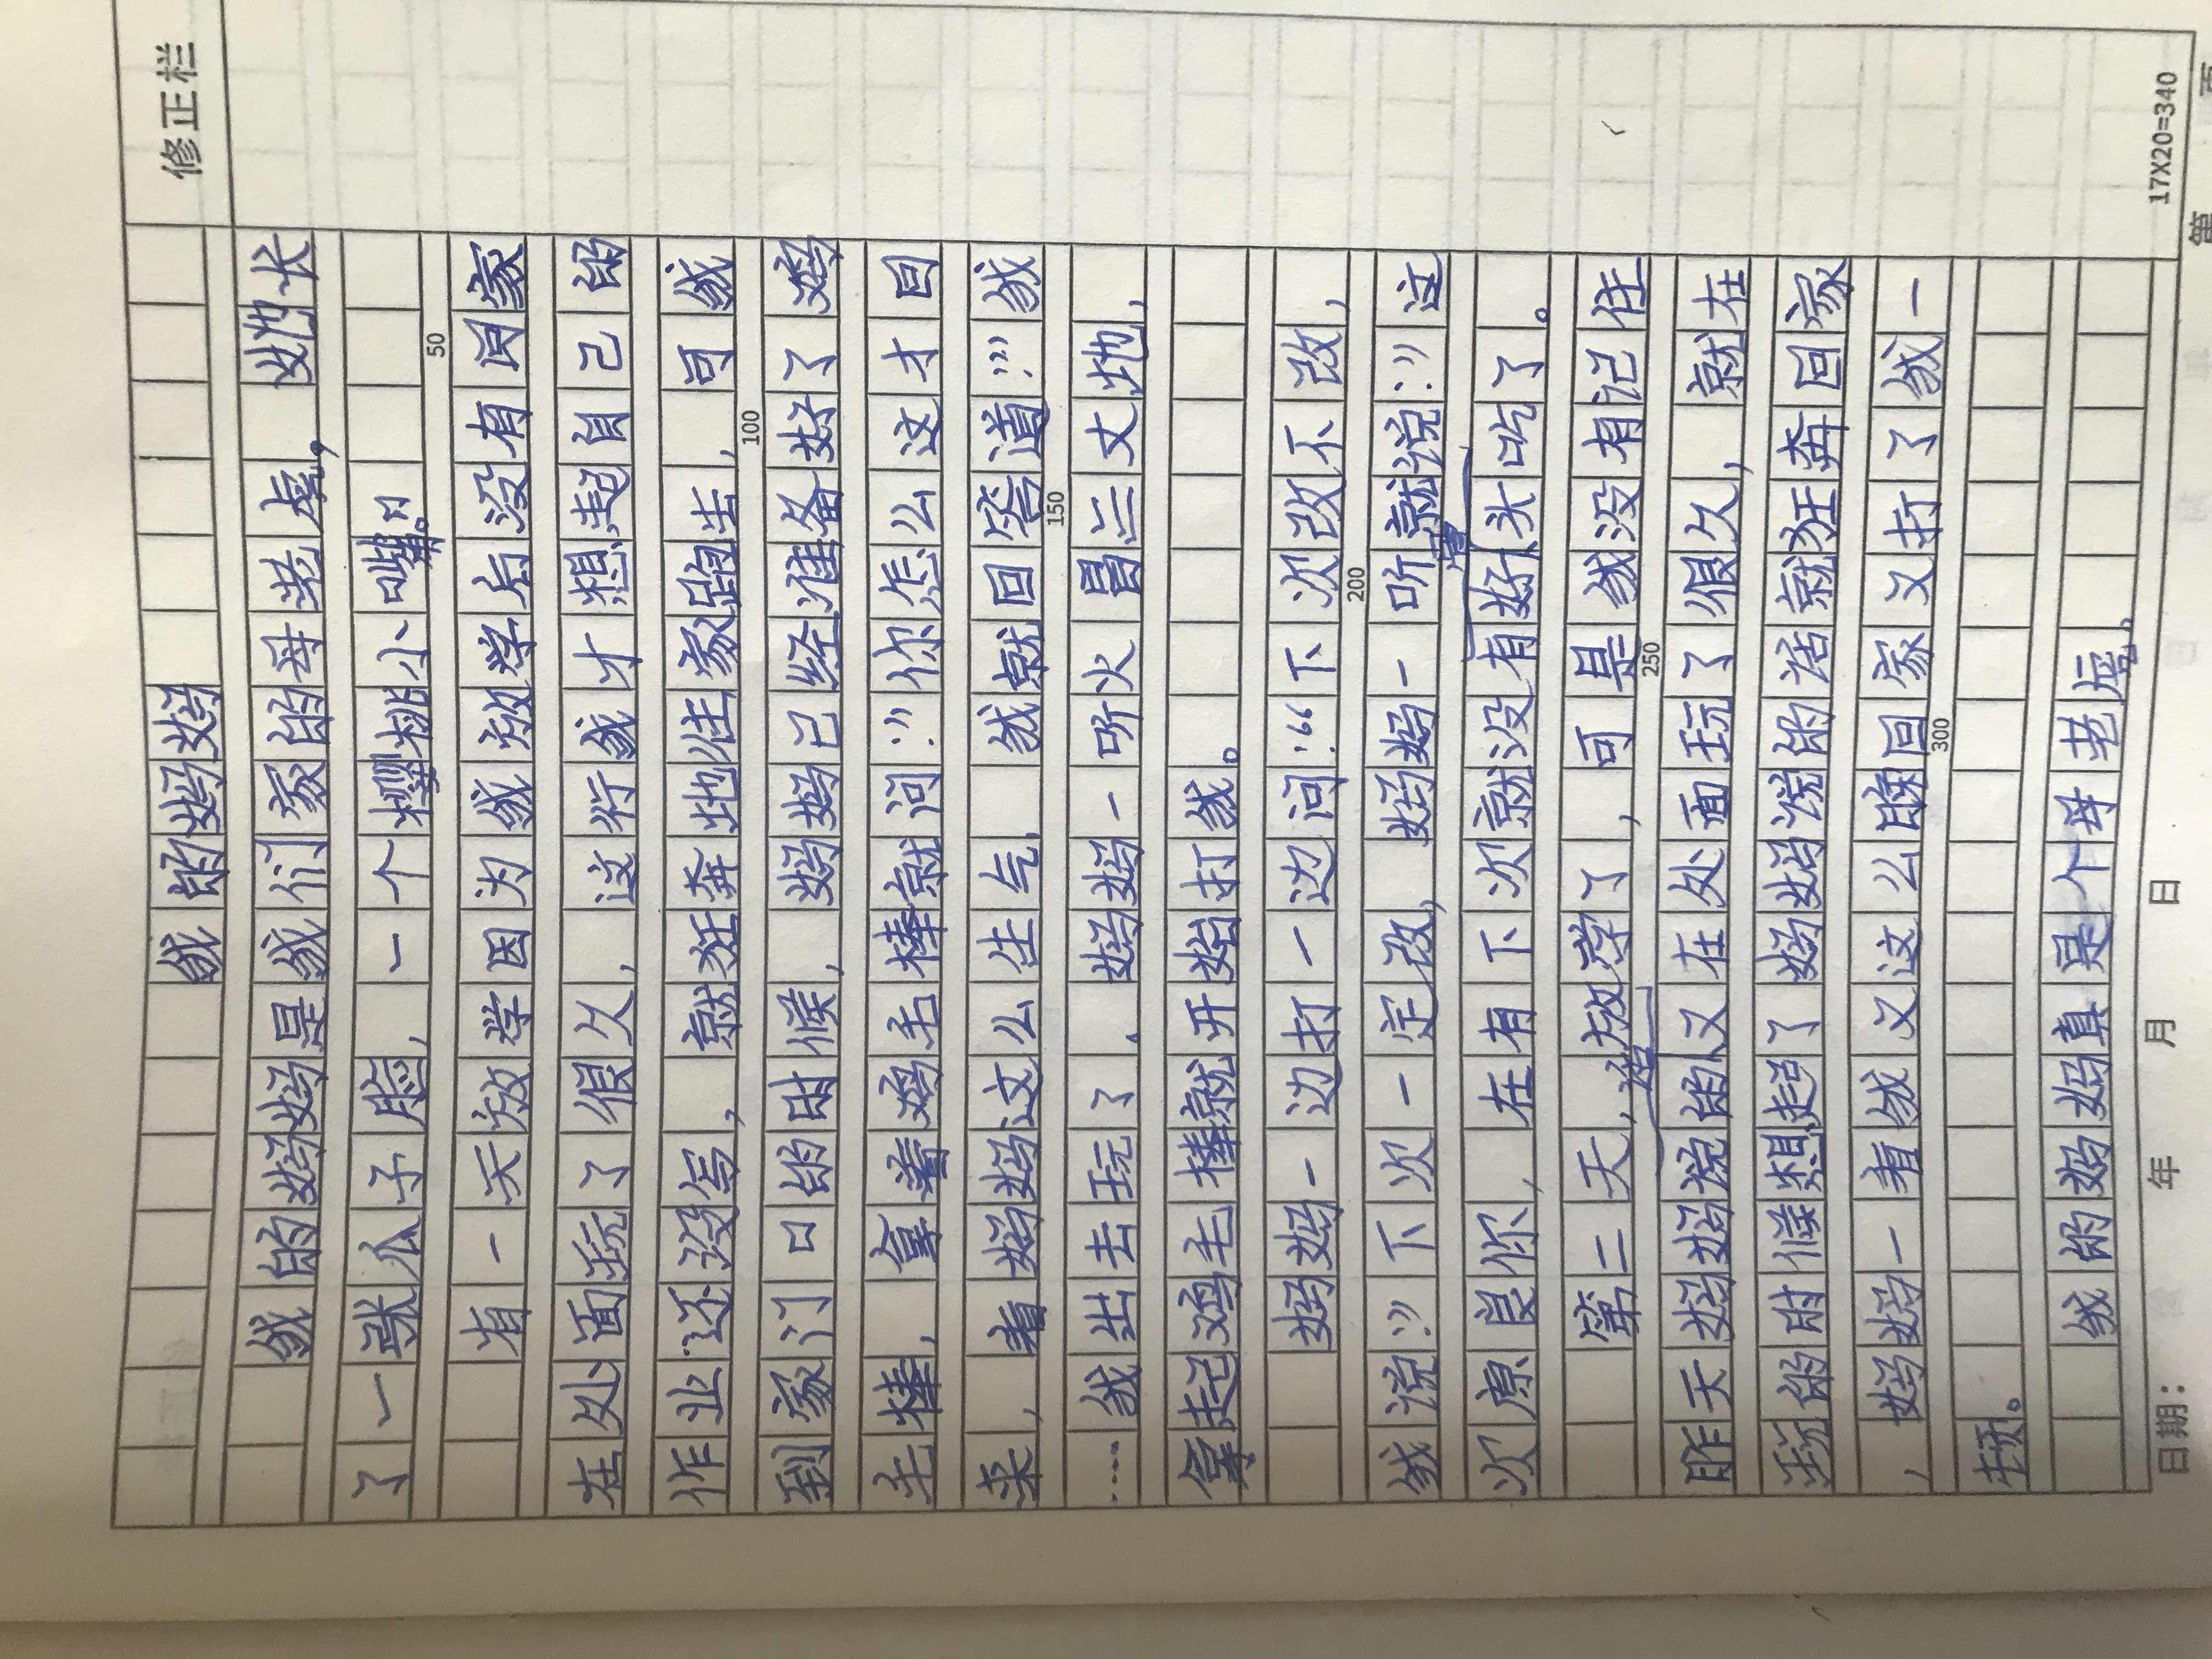 修正栏
我的妈妈
我的妈妈是我们家的母老虎，她长
了一张瓜子脸，一个樱桃小嘴。
50
有一天放学因为我放学后没有回家
在处面玩了很久，这行我才想起自己的
作业还没写，就狂奔地往家跑去，可我
100
到家门口的时候，妈妈已经准备好了鸡
毛棒，拿着鸡毛棒就问：”你怎么这才回
来，看妈妈这么生气，我就回答道：”我
150
……我出去玩了、妈妈一听火冒三丈地，
拿起鸡毛棒就开始打我。
妈妈一边打一边问：“下次改不改，
200
我说：”下次一定改，妈妈一听就说：”这
次原良你，在有下次就没有好头吃了。
第二天，放学了，可是我没有记住
250
昨天妈妈说的又在处面玩了很久，就在
玩的时候想起了妈妈说的话就狂奔回家
，妈妈一看我又这么晚回家又打了我一
300
顿。
我的妈妈真是个母老虎。
日期： 年 月 日
17X20=340
第 页